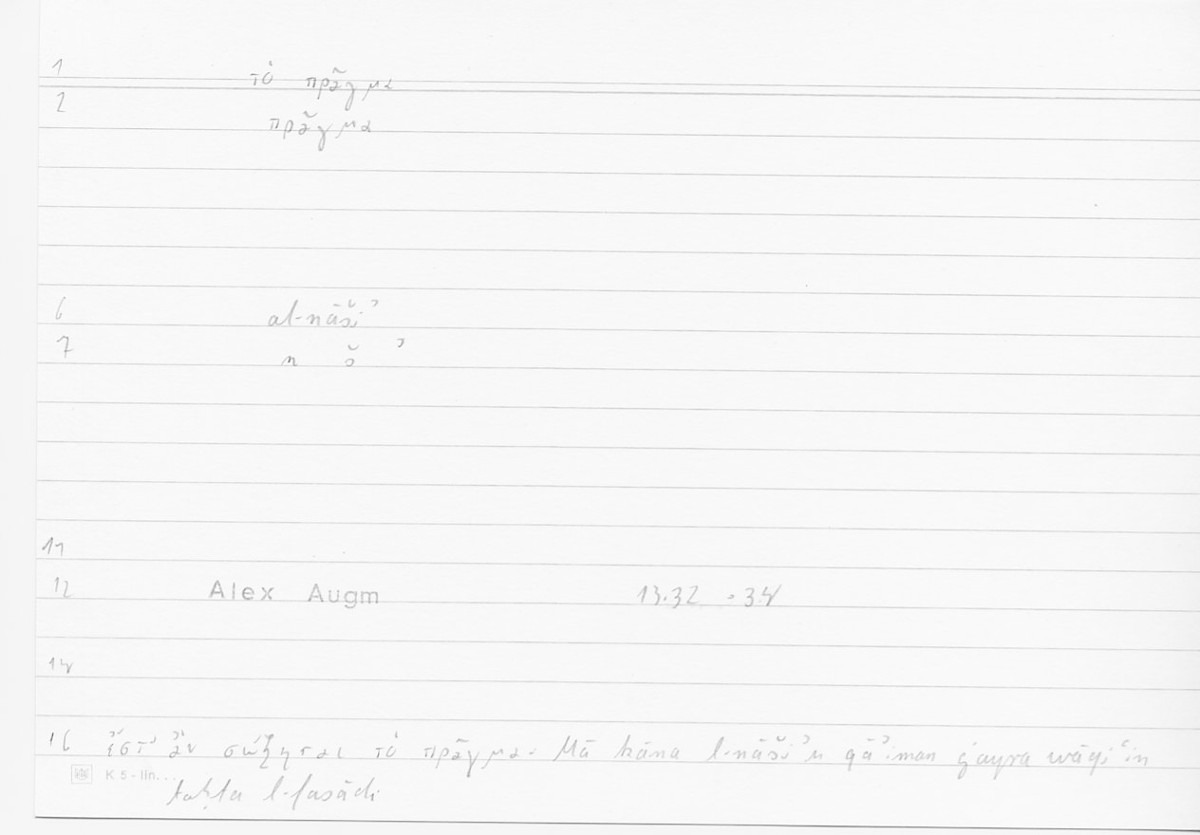 1 τὸ πρᾶγμα
2 πρᾶγμα
6 al-nāšiʾ
7 n š ʾ
11
12 Alex Augm 13.32 - 34
14
16 ἔστ' ἂν σώζηται τὸ πρᾶγμα. Mā kāna l-nāšiʾu qāʾiman ġayra wāqiʿin
K 5 - lin...
taḥta l-fasādi